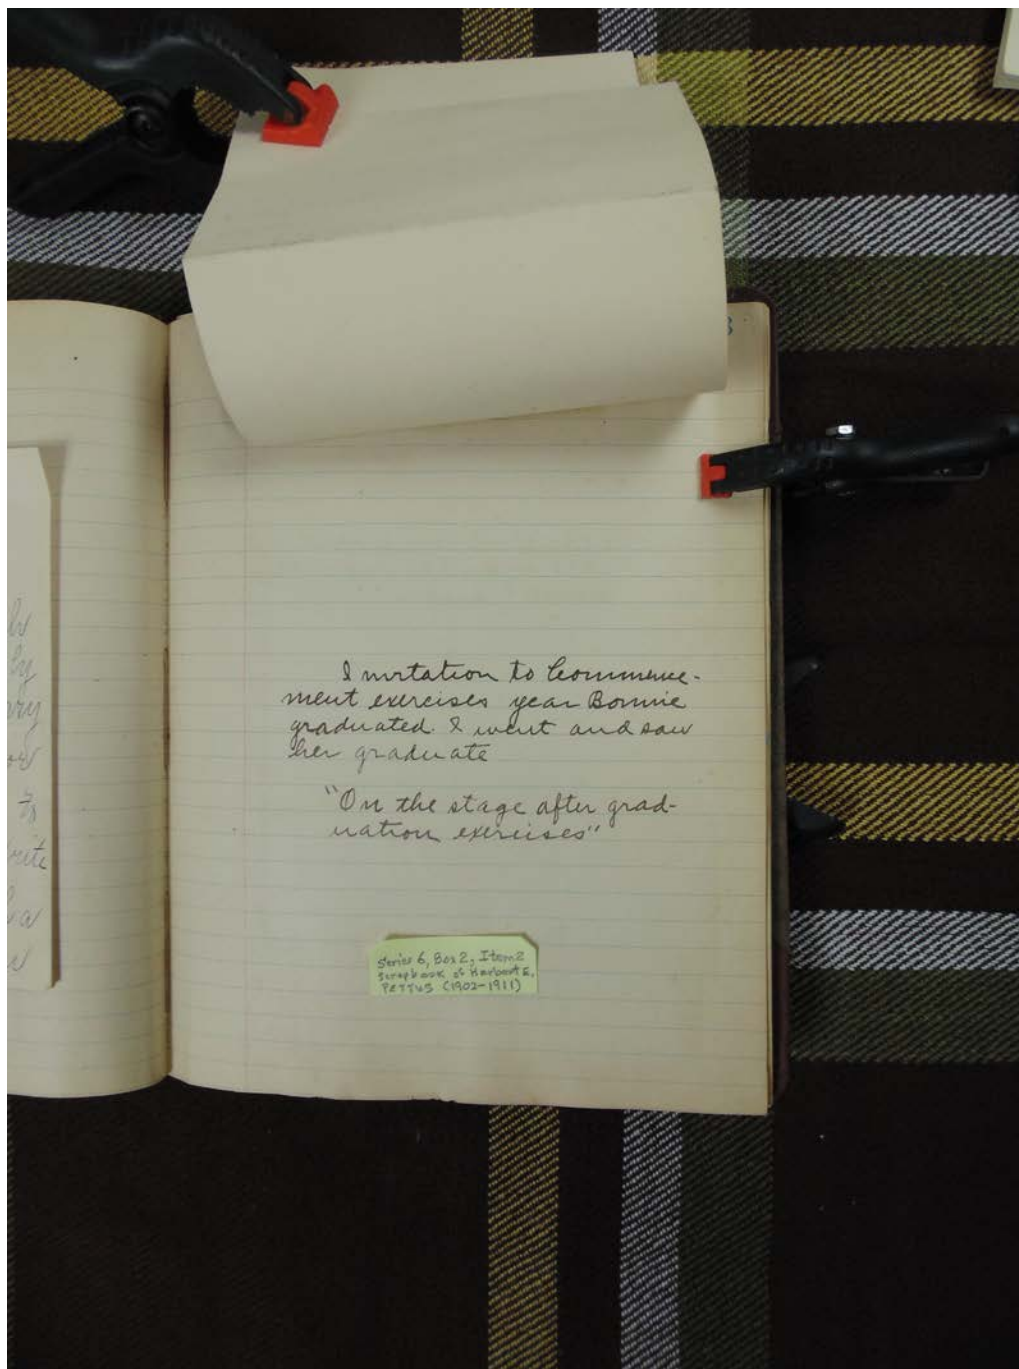 3
ly
ary
to
write
a
Invitation to Commence-
ment exercises year Bonnie
graduated. I went and saw
her graduate
"On the stage after grad-
uation exercises"
Series 6, Box 2, Item 2
Scrapbook of Herbert E.
Pettus (1902-1911)